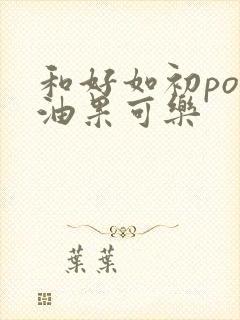 和好如初po
油果可樂
葉葉